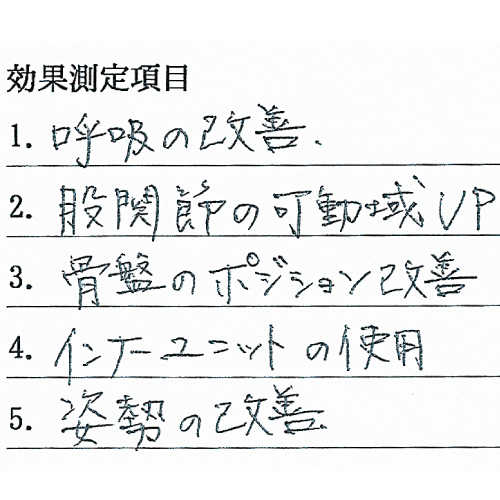 効果測定項目
1. 呼吸の改善.
2. 股関節の可動域UP
3. 骨盤のポジション改善
4. インナーユニットの使用
5. 姿勢の改善.